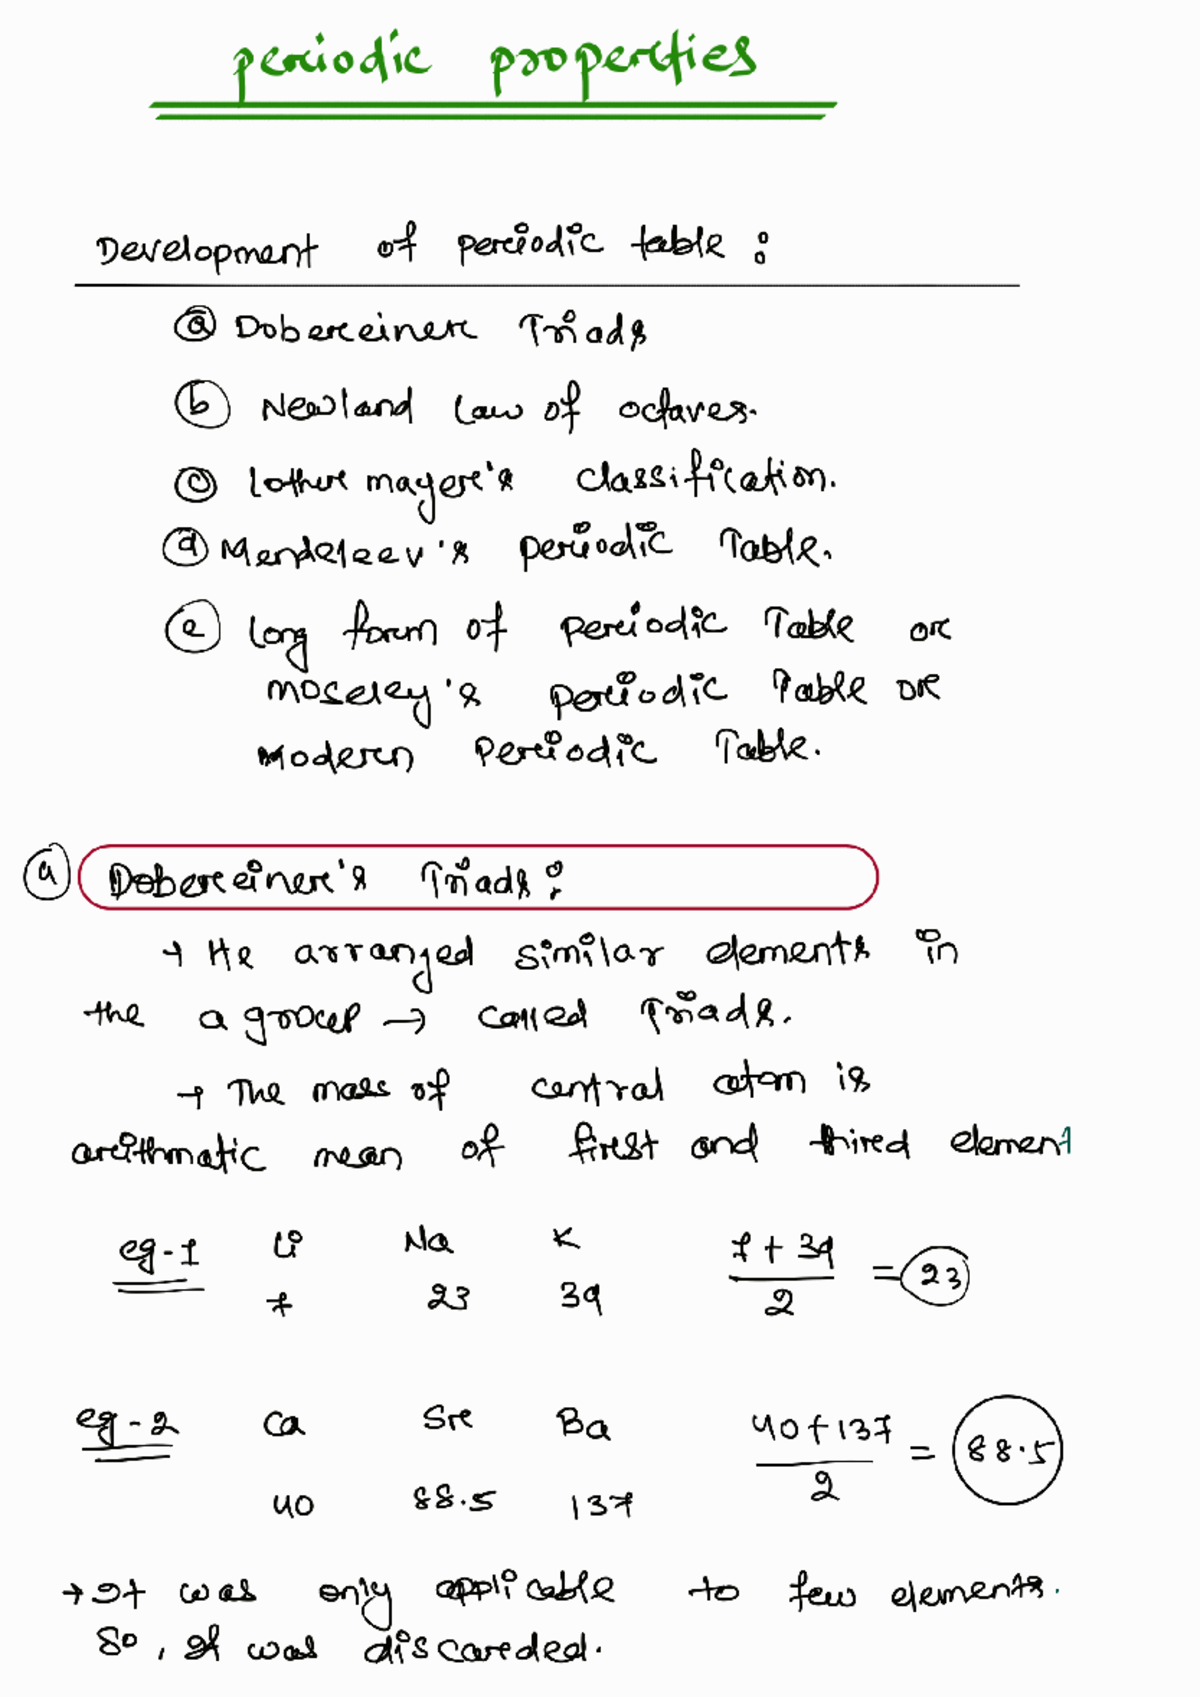 periodic properties
Development of periodic table :
(a) Dobereiner Triads
(b) Newland law of octaves.
(c) lother mayer's classification.
(d) Mendeleev's periodic Table.
(e) long form of periodic Table or
moseley's periodic Table or
Modern Periodic Table.
(a) Dobereiner's Triads :
→ He arranged similar elements in
the a group → called Triads.
→ The mass of central atom is
arithmatic mean of first and third element
eg-1 Li Na K 7 + 39 / 2 = 23
7 23 39
eg-2 Ca Sr Ba 40 + 137 / 2 = 88.5
40 88.5 137
→ It was only applicable to few elements.
So, it was discarded.